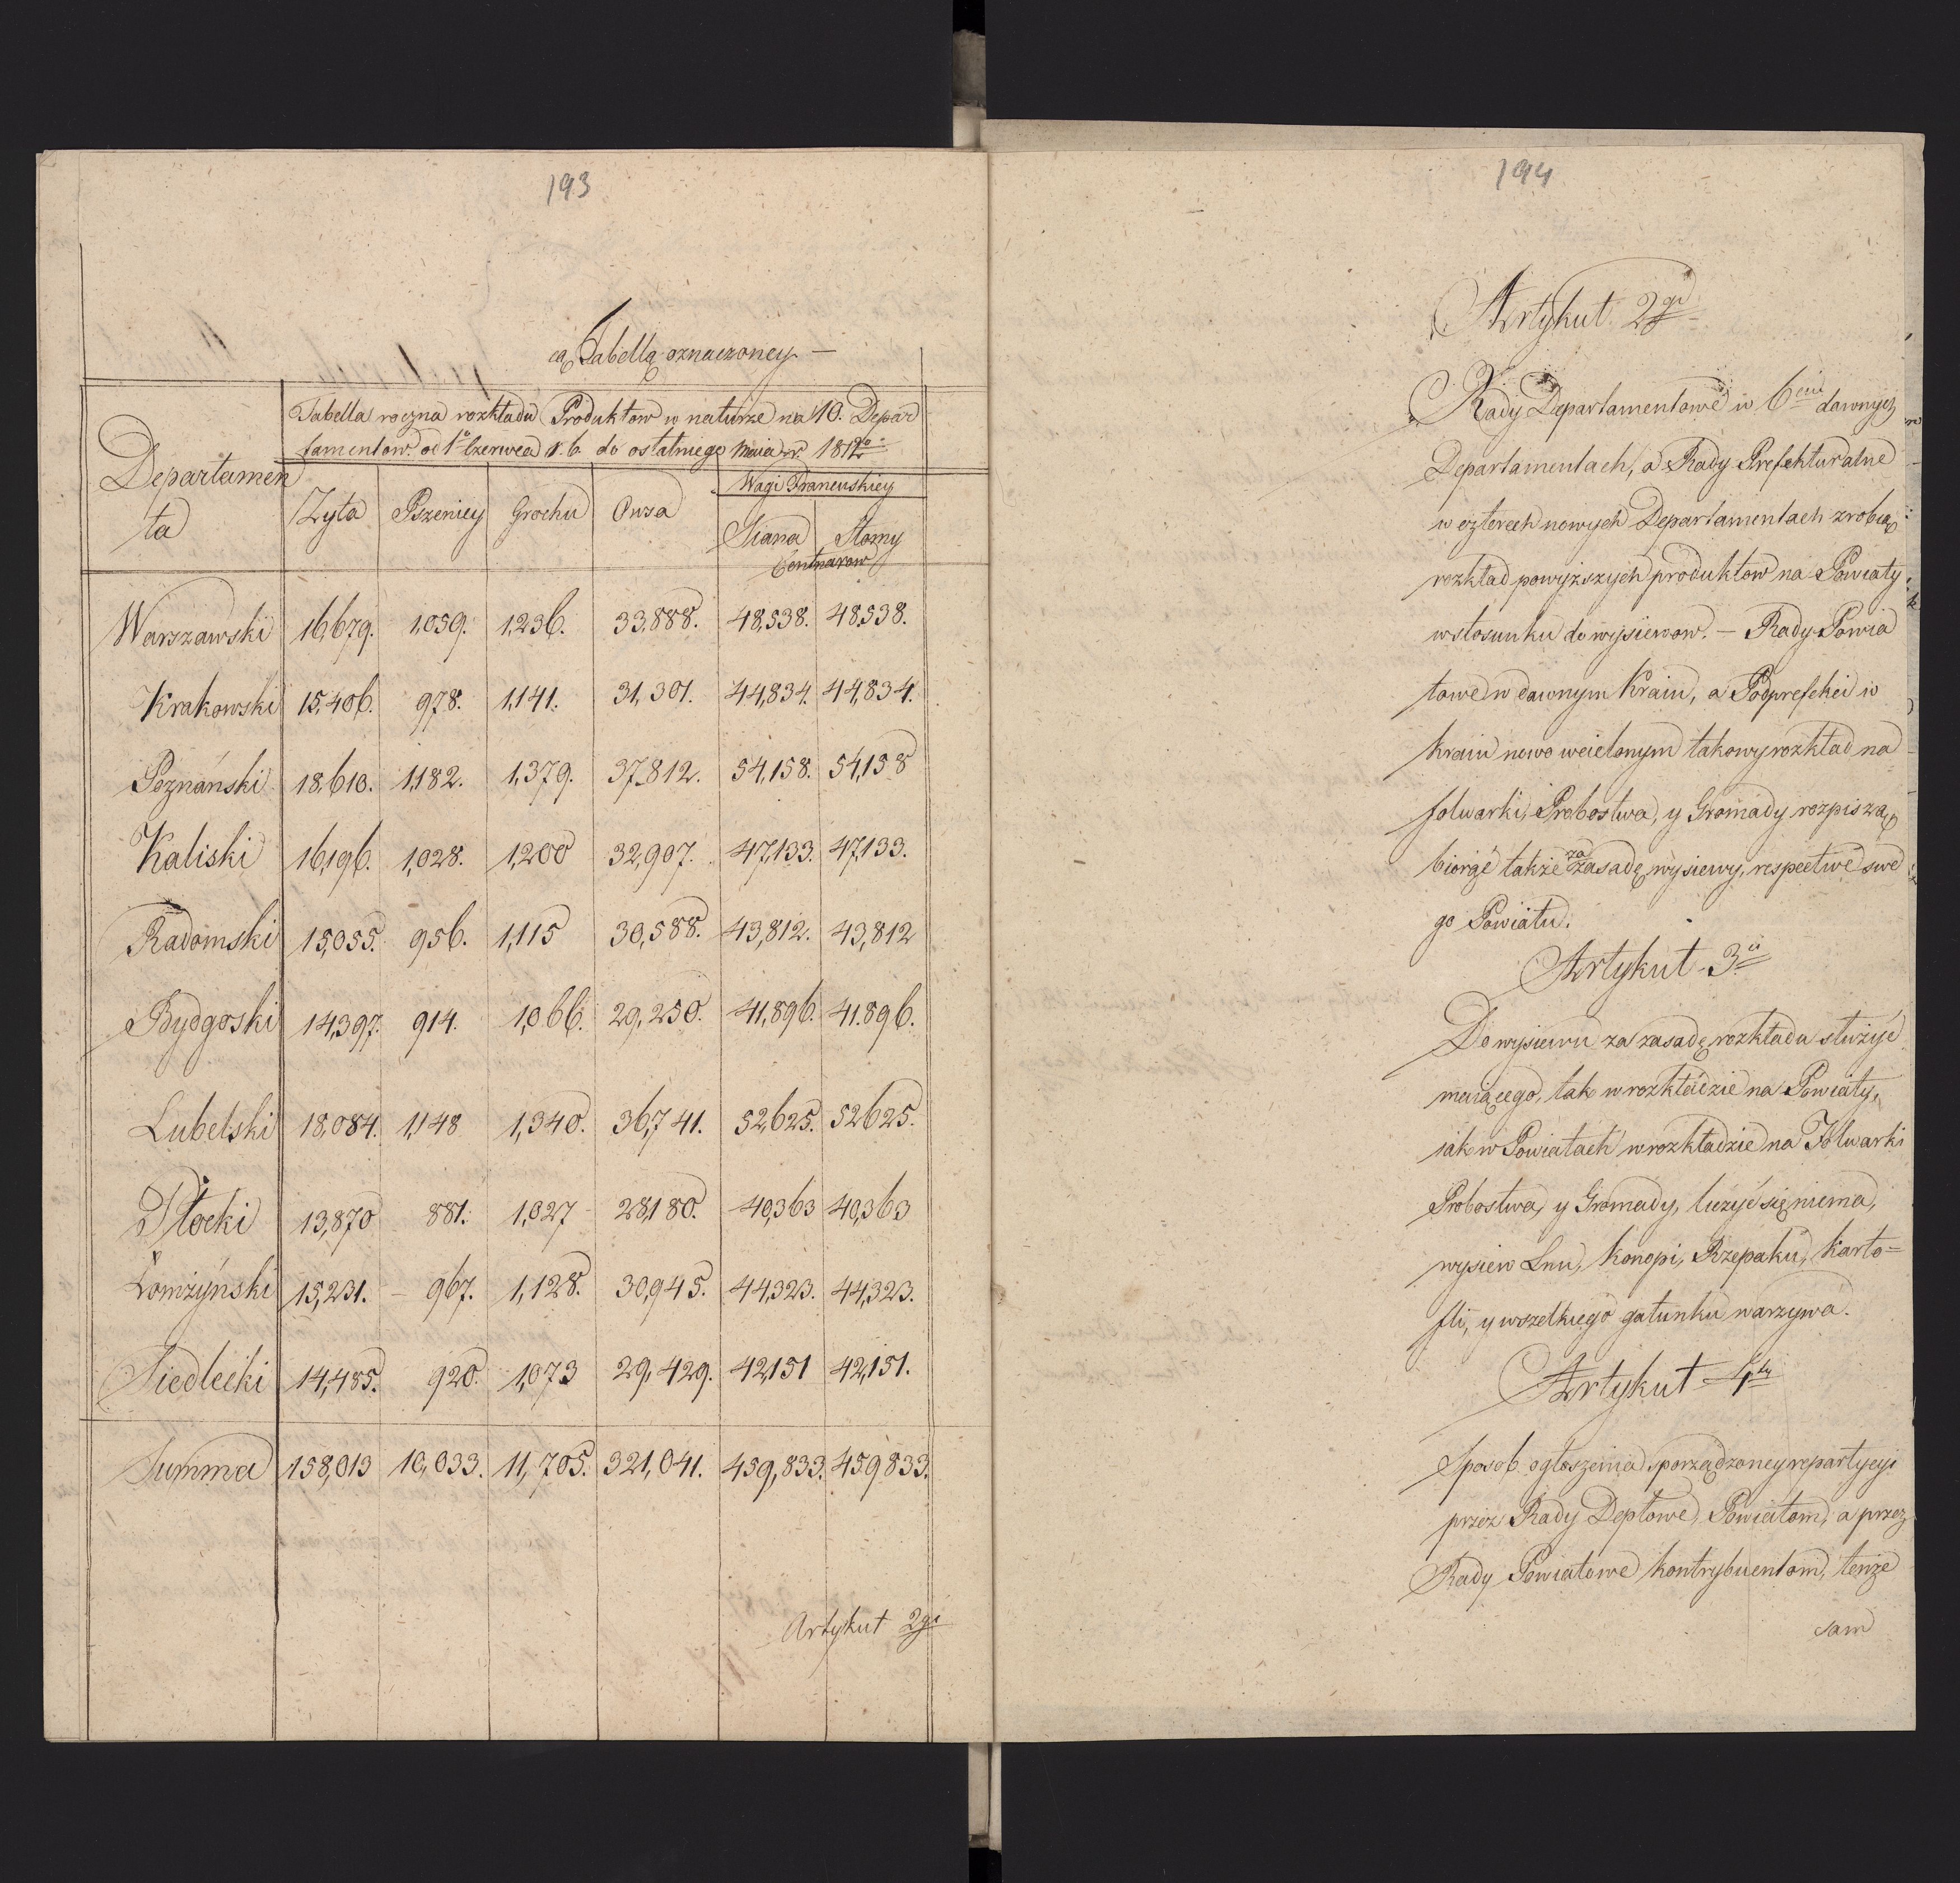 193
cą Tabellą oznaczoney. —
Departamen
ta
Tabella roczna rozkładu Produktow w naturze na 10. Depar
tamentow. od 1º Czerwca r. b. do ostatniego Maia r. 1812º
Żyta Pszenicy Grochu Owsa Wagi Francuskiey
Siana Słomy
Centnarow
Warszawski 16,679. 1,059. 1,236. 33,888. 48,538. 48,538.
Krakowski 15,406. 978. 1,141. 31,301. 44,834. 44,834.
Poznański 18,610. 1,182. 1,379. 37,812. 54,158. 54,158
Kaliski 16,196. 1,028. 1,200 32,907. 47,133. 47,133.
Radomski 15,055. 956. 1,115 30,588. 43,812. 43,812
Bydgoski 14,397. 914. 1,066. 29,250. 41,896. 41.896.
Lubelski 18,084. 1,148 1,340. 36,741. 52,625. 52,625.
Płocki 13,870 881. 1,027 28,180. 40,363 40,363
Łomżyński 15,231. — 967. 1,128. 30,945. 44,323. 44,323.
Siedlecki 14,485. 920. 1,073 29,429. 42,151 42,151.
Summa 158,013 10,033. 11,705. 321,041. 459,833. 459,833.
Artykuł 2gi
194
Artykuł 2gi
Rady Departamentowe w 6ciu dawnych
Departamentach, a Rady Prefekturalne
w czterech nowych Departamentach zrobią
rozkład powyższych produktow na Powiaty
w stosunku do wysiewow. — Rady Powia
towe w dawnym Kraiu, a Podprefekci w
kraiu nowo wcielonym takowy rozkład na
folwarki, Probostwa, y Gromady rozpiszą
biorąc także za zasadę wysiewy, respective swe
go Powiatu.
Artykuł 3ci
Do wysiewu za zasadę rozkładu służyć
maiącego, tak w rozkładzie na Powiaty,
iak w Powiatach w rozkładzie na Folwarki
Probostwa, y Gromady, liczyć się niema,
wysiew Lnu, Konopi, Rzepaku, Karto=
fli, y wszelkiego gatunku warzywa.
Artykuł 4ty
Sposob ogłoszenia sporządzoney repartycyi
przez Rady Deptowe, Powiatom, a przez
Rady Powiatowe kontrybuentom, tenże
sam